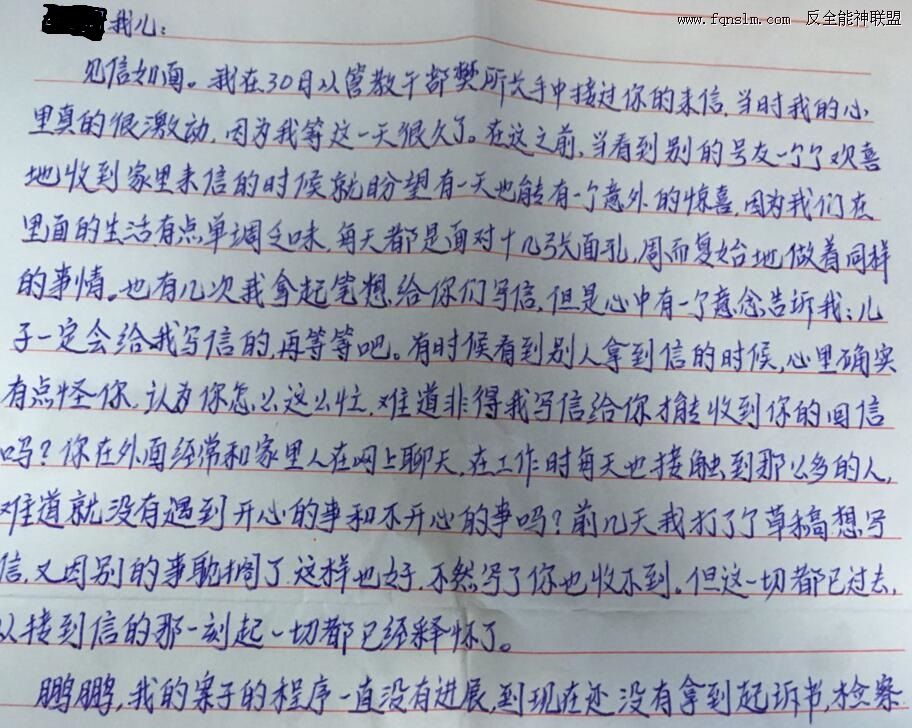 www.fqnslm.com 反全能神联盟
我儿：
见信如面。我在30日从管教干部樊所长手中接过你的来信，当时我的心
里真的很激动，因为我等这一天很久了。在这之前，当看到别的号友一个个欢喜
地收到家里来信的时候就盼望有一天也能有一个意外的惊喜，因为我们在
里面的生活有点单调乏味，每天都是面对十几张面孔，周而复始地做着同样
的事情。也有几次我拿起笔想给你们写信，但是心中有一个意念告诉我：儿
子一定会给我写信的，再等等吧。有时候看到别人拿到信的时候，心里确实
有点怪你，认为你怎么这么忙，难道非得我写信给你才能收到你的回信
吗？你在外面经常和家里人在网上聊天，在工作时每天也接触到那么多的人，
难道就没有遇到开心的事和不开心的事吗？前几天我打了个草稿想写
信，又因别的事耽搁了，这样也好，不然写了你也收不到。但这一切都已过去，
从接到信的那一刻起一切都已经释怀了。
鹏鹏，我的案子的程序一直没有进展，到现在还没有拿到起诉书，检察